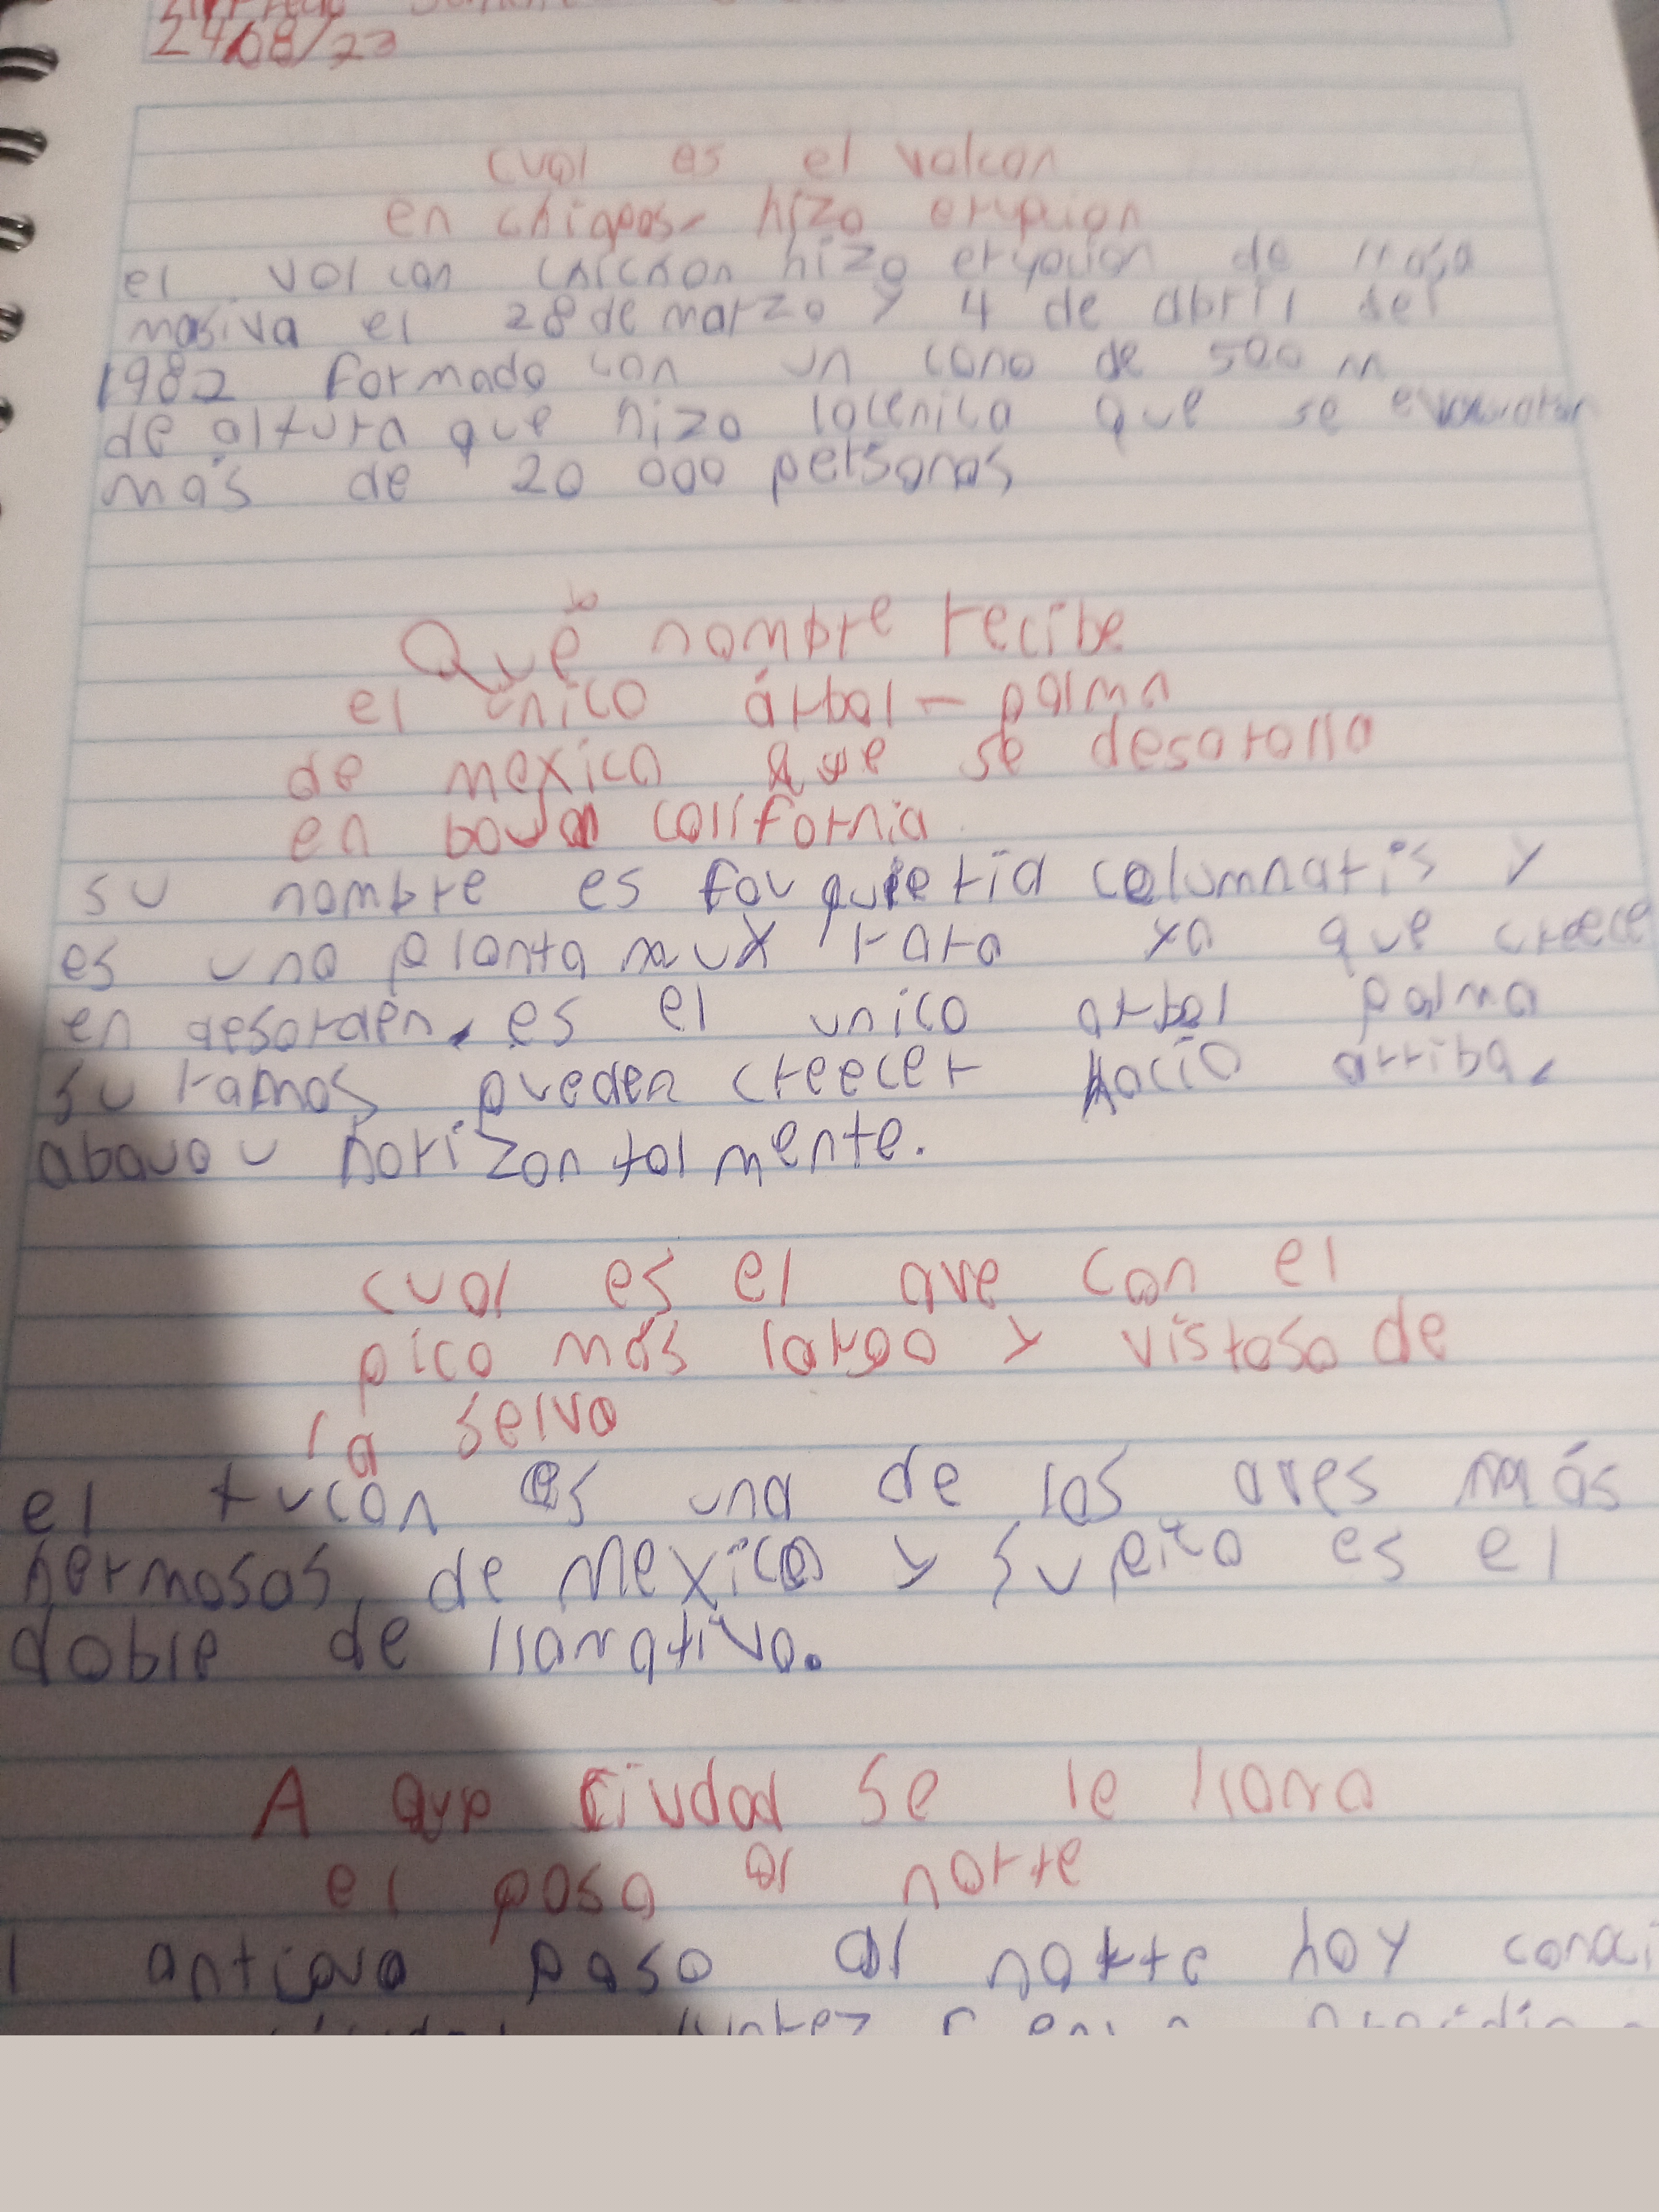 24/08/23
cual es el valcan
en chiapas hizo erupcion
el volcan chichon hizo erupcion de
masiva el 28 de marzo y 4 de abril del
1982 formado con un cono de 500 m
de altura que hizo que se
más de 20 000 personas
Qué nombre recibe
el único árbol - palma
de mexico que se desarolla
en California
su nombre es fouquietia columnaris y
es una planta muy rara ya que creece
en desorden, es el unico arbol palma
su ramas pueden creecer hacia arriba,
horizontalmente.
cual es el ave con el
pico más largo y vistoso de
la selva
el tucan es una de las aves más
hermosas de Mexico y su pico es el
doble de llamativo.
A que Ciudad se le llama
el paso al norte
antiguo paso al norte hoy conoci